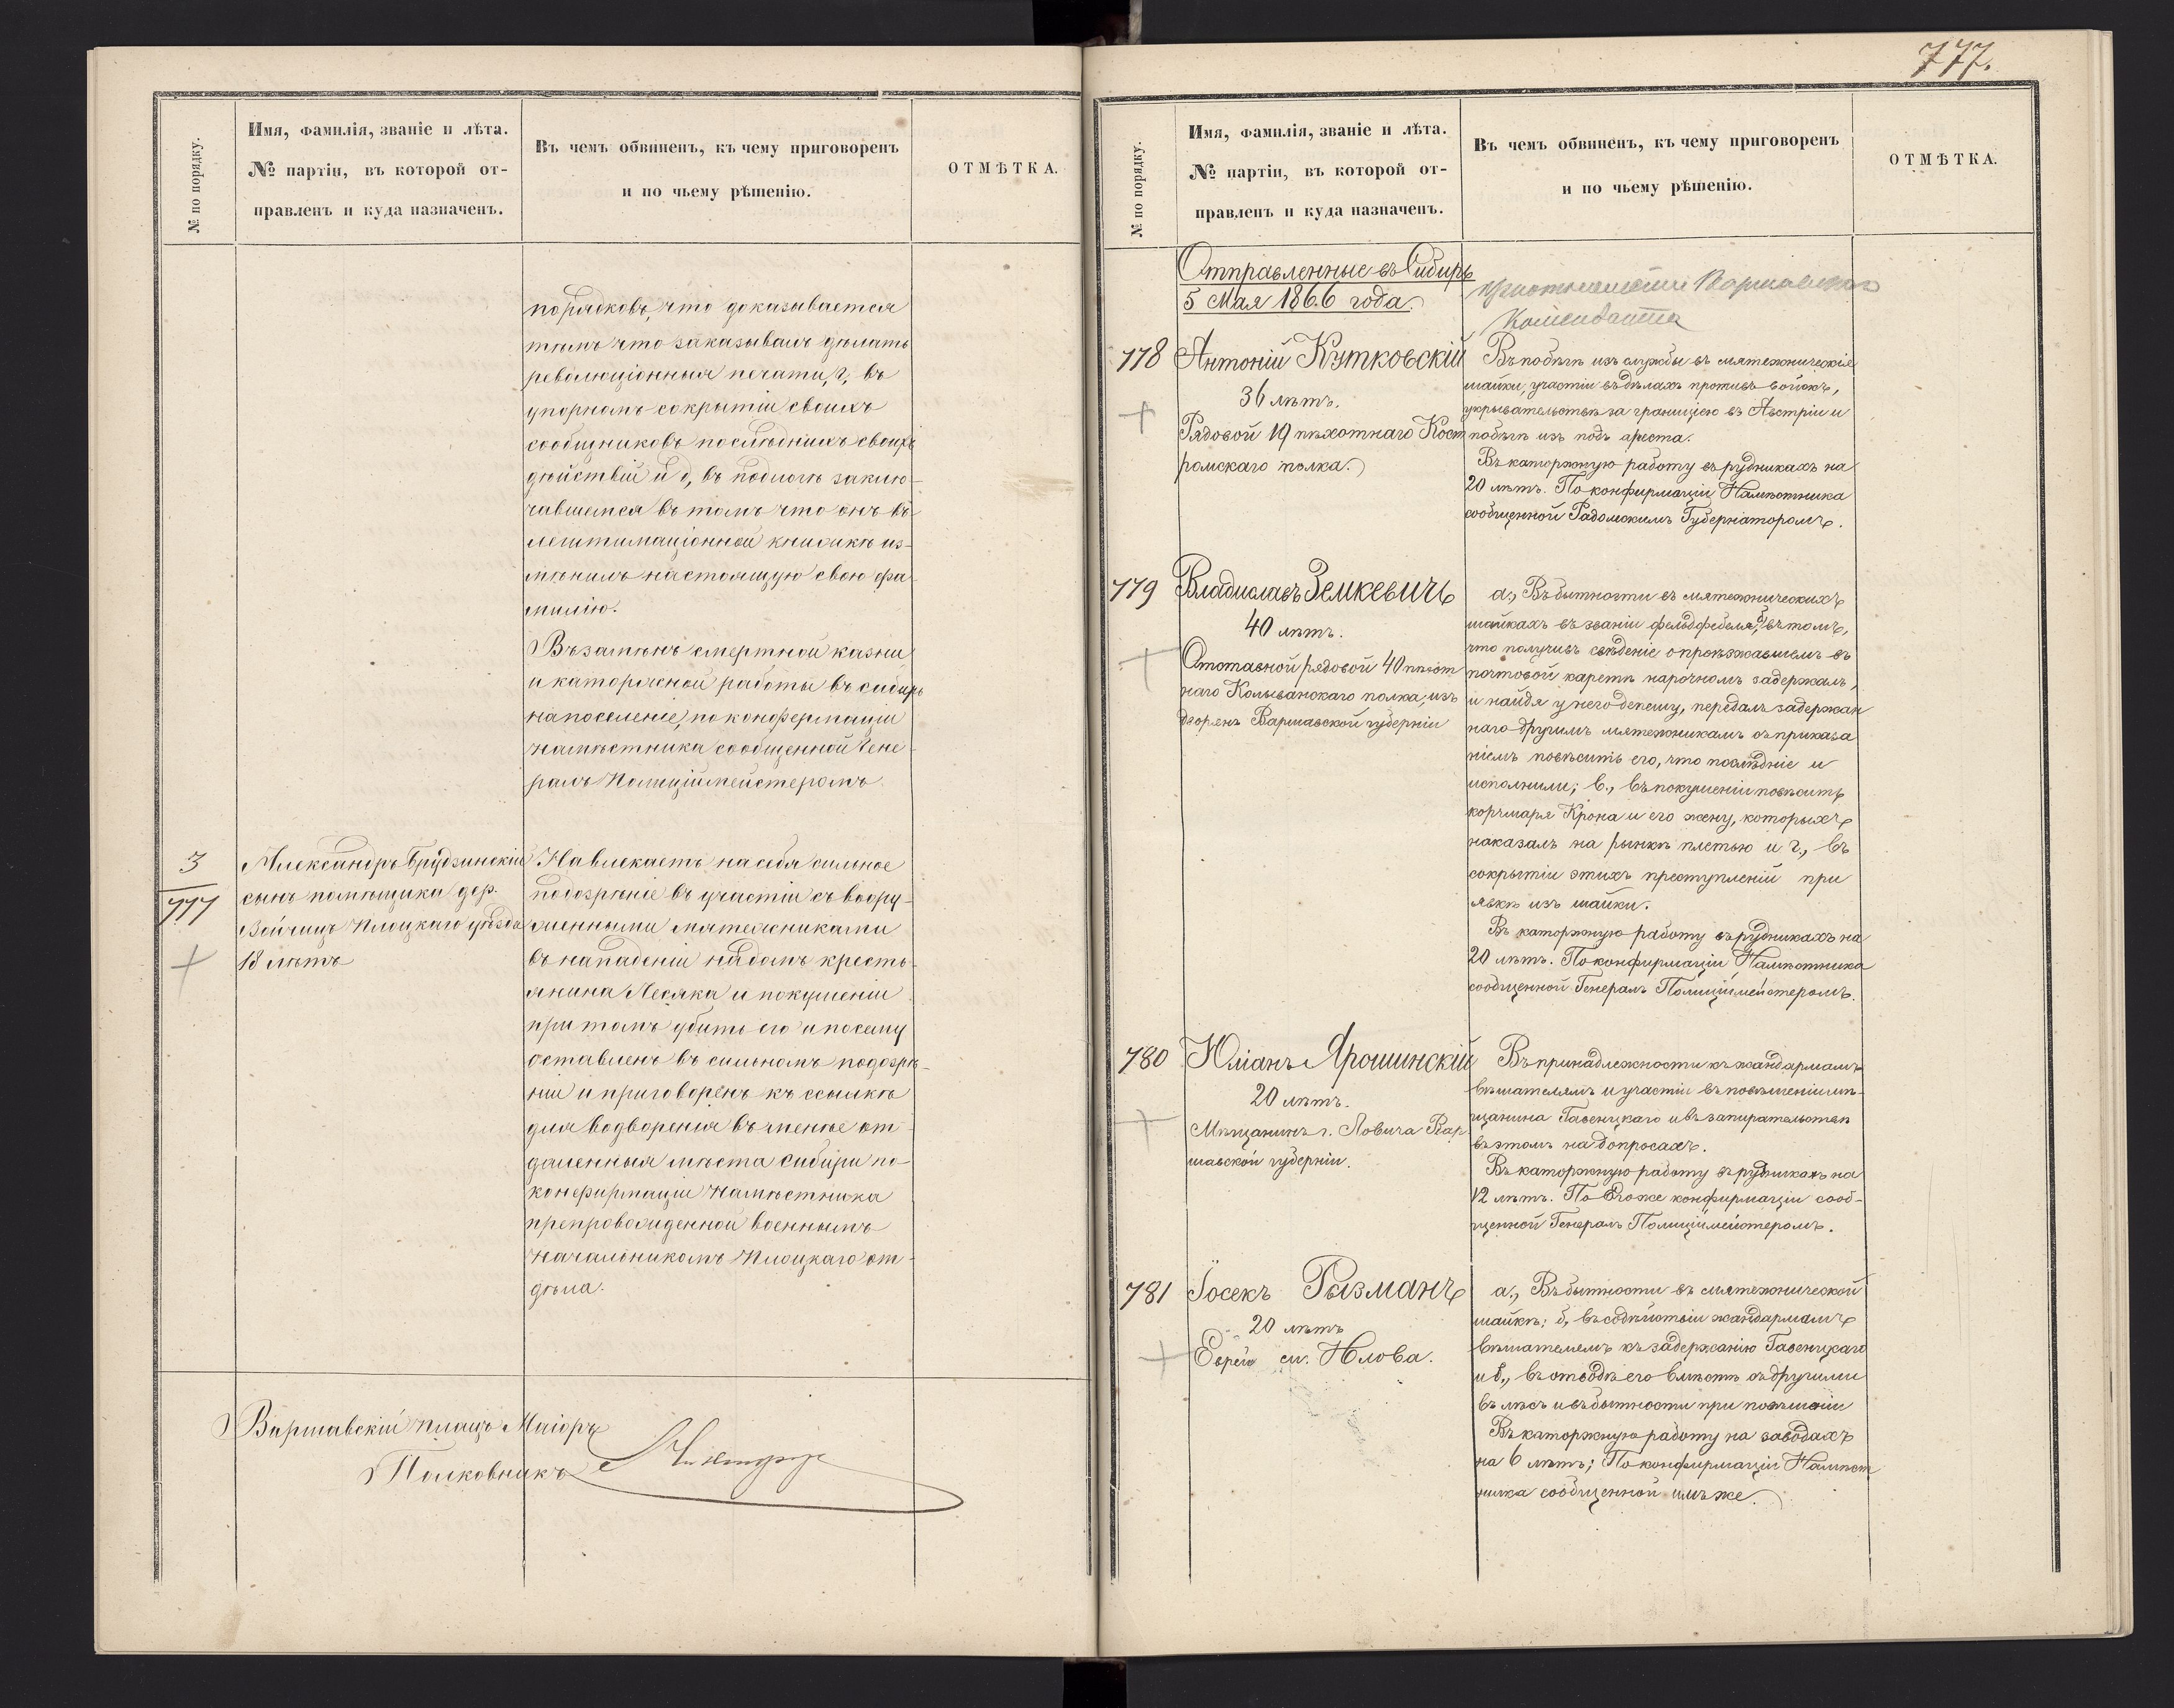 777.
№ по порядку.
Имя, фамилія, званіе и лѣта.
№ партіи, въ которой от-
правленъ и куда назначенъ.
Въ чемъ обвиненъ, къ чему приговоренъ
и по чьему рѣшенію.
ОТМѢТКА.
порядковъ, что доказывается
тѣмъ что заказывалъ дѣлать
революціонныя печати, г, въ
упорномъ сокрытіи своихъ
сообщниковъ последнихъ своихъ
дѣйствій и д, въ подлогѣ заклю-
чавшемся въ томъ что онъ въ
легитимаціонной книжкѣ из-
мѣнилъ настоящую свою фа-
милію.
Въ замѣнъ смертной казни
и каторжной работы въ сибирь
на поселеніе, по конфермаціи
намѣстника сообщенной Гене-
ралъ Полиціймейстеромъ.
3
777
Александръ Грудзинскій
сынъ помѣщика дер.
Плоцкаго уѣзда
18 лѣтъ
Навлекаетъ на себя сильное
подозрѣніе въ участіи съ воору-
женными мятежниками
въ нападеніи на домъ кресть-
янина Лесяка и покушеніи
при томъ убить его и посему
оставленъ въ сильномъ подозрѣ-
ніи и приговоренъ къ ссылкѣ
для водворенія въ менѣе от-
даленныя мѣста Сибири по
конфирмаціи Намѣстника
препровожденной военнымъ
начальникомъ Плоцкаго от-
дѣла.
Варшавскій плацъ Маіоръ
Полковникъ
№ по порядку.
Имя, фамилія, званіе и лѣта.
№ партіи, въ которой от-
правленъ и куда назначенъ.
Въ чемъ обвиненъ, къ чему приговоренъ
и по чьему рѣшенію.
ОТМѢТКА.
Отправленные въ Сибирь
5 Мая 1866 года.
Варшавскаго
Коменданта
778
Антоній Кутковскій
36 лѣтъ.
Рядовой 19 пѣхотнаго Кост
ромскаго полка.
Въ побѣгѣ изъ службы въ мятежническія
шайки, участіи въ дѣлахъ противъ войскъ,
укрывательствѣ за границею въ Австріи и
побѣгѣ изъ подъ ареста.
Въ каторжную работу въ рудникахъ на
20 лѣтъ. По конфирмаціи Намѣстника
сообщенной Радомскимъ Губернаторомъ.
779
Владиславъ Земкевичъ
40 лѣтъ.
Отставной рядовой 40 пѣхот
наго Колыванскаго полка, изъ
дворянъ Варшавской губерніи
а., Въ бытности въ мятежническихъ
шайкахъ въ званіи фельдфебеля, б, въ томъ,
что получивъ свѣденіе о проѣзжавшемъ въ
почтовой каретѣ нарочномъ задержалъ,
и найдя у него депешу, передалъ задержан
наго другимъ мятежникамъ съ приказа
ніемъ повѣсить его, что послѣдніе и
исполнили; в., въ покушеніи повѣсить
корчмаря Крона и его жену, которыхъ
наказалъ на рынкѣ плетью и г., въ
сокрытіи этихъ преступленій при
явкѣ изъ шайки.
Въ каторжную работу въ рудникахъ на
20 лѣтъ. По конфирмаціи Намѣстника
сообщенной Генералъ Полиціймейстеромъ.
780
Юліанъ Ярошинскій
20 лѣтъ.
Мѣщанинъ г. Ловича Вар
шавской губерніи.
Въ принадлежности къ жандармамъ
вѣшателямъ и участіи въ повѣшеніи мѣ-
щанина Гавенцкаго и въ запирательствѣ
въ этомъ на допросахъ.
Въ каторжную работу въ рудникахъ на
12 лѣтъ. По Егоже конфирмаціи сооб-
щенной Генералъ Полиціймейстеромъ.
781
Іосекъ Рызманъ
20 лѣтъ
Еврей см. Илова.
а., Въ бытности въ мятежнической
шайкѣ; б, въ содѣйствіи жандармамъ
вѣшателемъ къ задержанію Гавенцкаго
и в., въ отводѣ его вмѣстѣ съ другими
въ лѣсъ и въ бытности при повѣшеніи
Въ каторжную работу на заводахъ
на 6 лѣтъ; По конфирмаціи Намѣст
ника сообщенной имъ же.